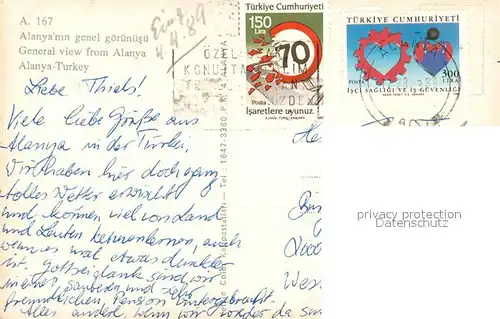 A. 167
Alanya'nın genel görünüşü
General view from Alanya
Alanya-Turkey
4.4.89
Liebe Thiels!
Viele liebe Grüße aus
Alanya in der Türkei.
Wir haben hier doch ganz
tolles Wetter erwischt
und können viel von Land
und Leuten kennenlernen, auch
wenn es mal etwas dunkler
ist. Gott sei dank sind wir
in einer sauberen und sehr
freundlichen Pension untergebracht.
Alles andere, wenn wir wieder da
Türkiye Cumhuriyeti
150
Lira
70
Posta
İşaretlere uyunuz.
TÜRKİYE CUMHURİYETİ
POSTA
300
LİRA
İŞÇİ SAĞLIĞI VE İŞ GÜVENLİĞİ
ÖZEL
KONUT
Color Kartpostalları - Tel : 1647-3360 P.K. 4 ALANYA
privacy protection
Datenschutz